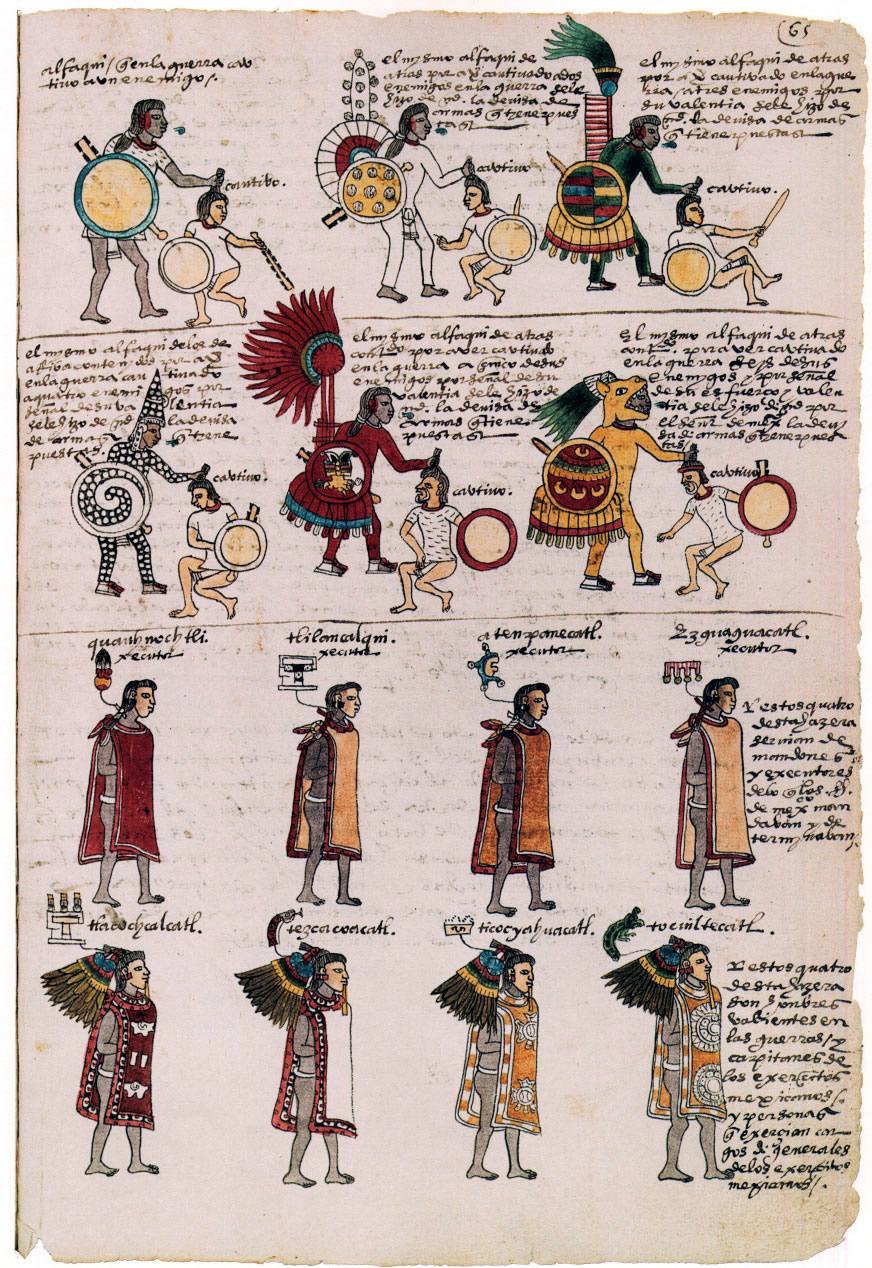 65
alfaqui / q̃ en la guerra cau
tivo a un enemigo /.
cautivo.
el mysmo alfaqui de
atras por aũ cautivado dos
enemigos en la guerra se le
hizo de md. la devisa de
armas q̃ tiene pues
tas
cautivo
el mysmo alfaqui de atras
por aũ cautivado en la gue
rra / a tres enemigos por
su valentia se le hizo de
md. la devisa de armas
q̃ tiene puestas
cautivo.
el mysmo alfaqui de los de
en la guerra cau tivado
a quatro enemi gos por
señal de su va lentia
se le hizo de md la devisa
de armas q̃ tiene
puestas.
cautivo.
el mysmo alfaqui de atras
por aver cautivado
en la guerra a cinco de sus
enemigos por señal de su
valentia se le hizo de
md. la devisa de
armas q̃ tiene
puestas
cautivo.
el mysmo alfaqui de atras
por aver cautivado
en la guerra seys de sus
enemigos / y por señal
de su esfuerço y valen
tia se le hizo por
el señor de mexco la devi
sa de armas q̃ tiene pues
tas
cautivo
quauhnochtli.
xecutor
tlilancalqui.
xecutor
atenpanecatl.
xecutor
Ezguaguacatl.
xecutor
Y estos quatro
desta hazera
servian de
mandones
y executores
de lo q̃ los
de mexco man
davan y de
termynavan /.
tlacochcalcatl.
tezcacoacatl.
ticocyahuacatl.
tocuiltecatl.
Y estos quatro
desta hazera
son honbres
valientes en
las guerras / y
capitanes de
los exercitos
mexicanos /.
y personas
q̃ exercian car
gos de generales
de los exercitos
mexicanos /.